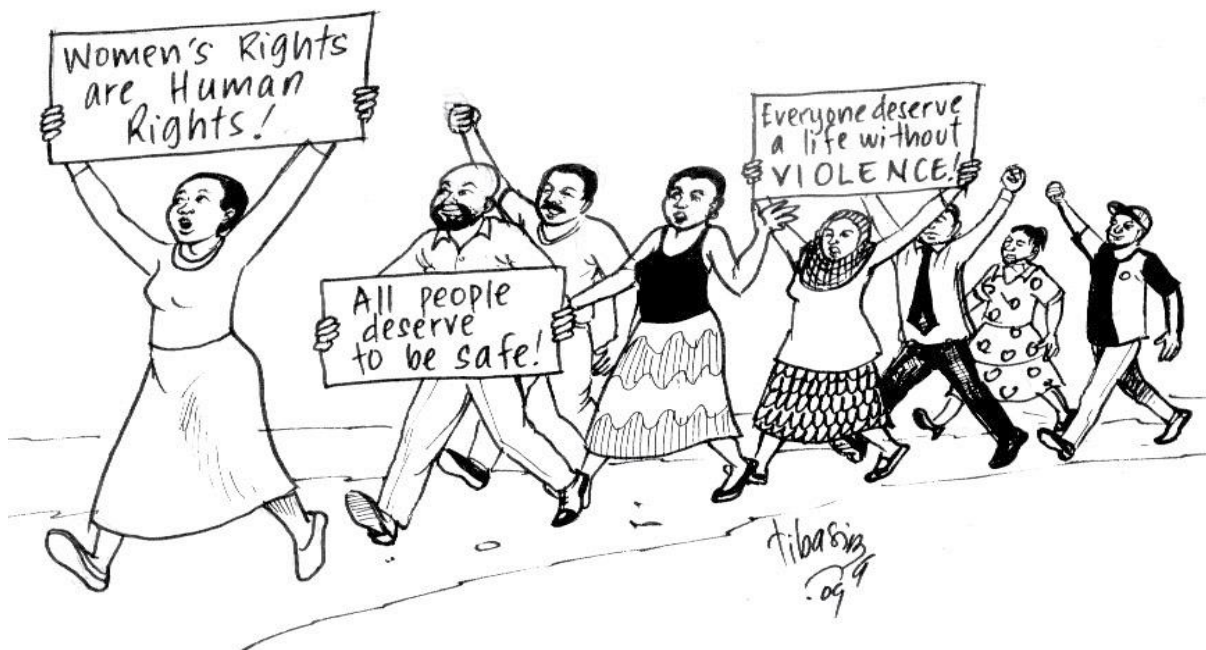 Women's Rights
are Human
Rights!
All people
deserve
to be safe!
Everyone deserve
a life without
VIOLENCE!